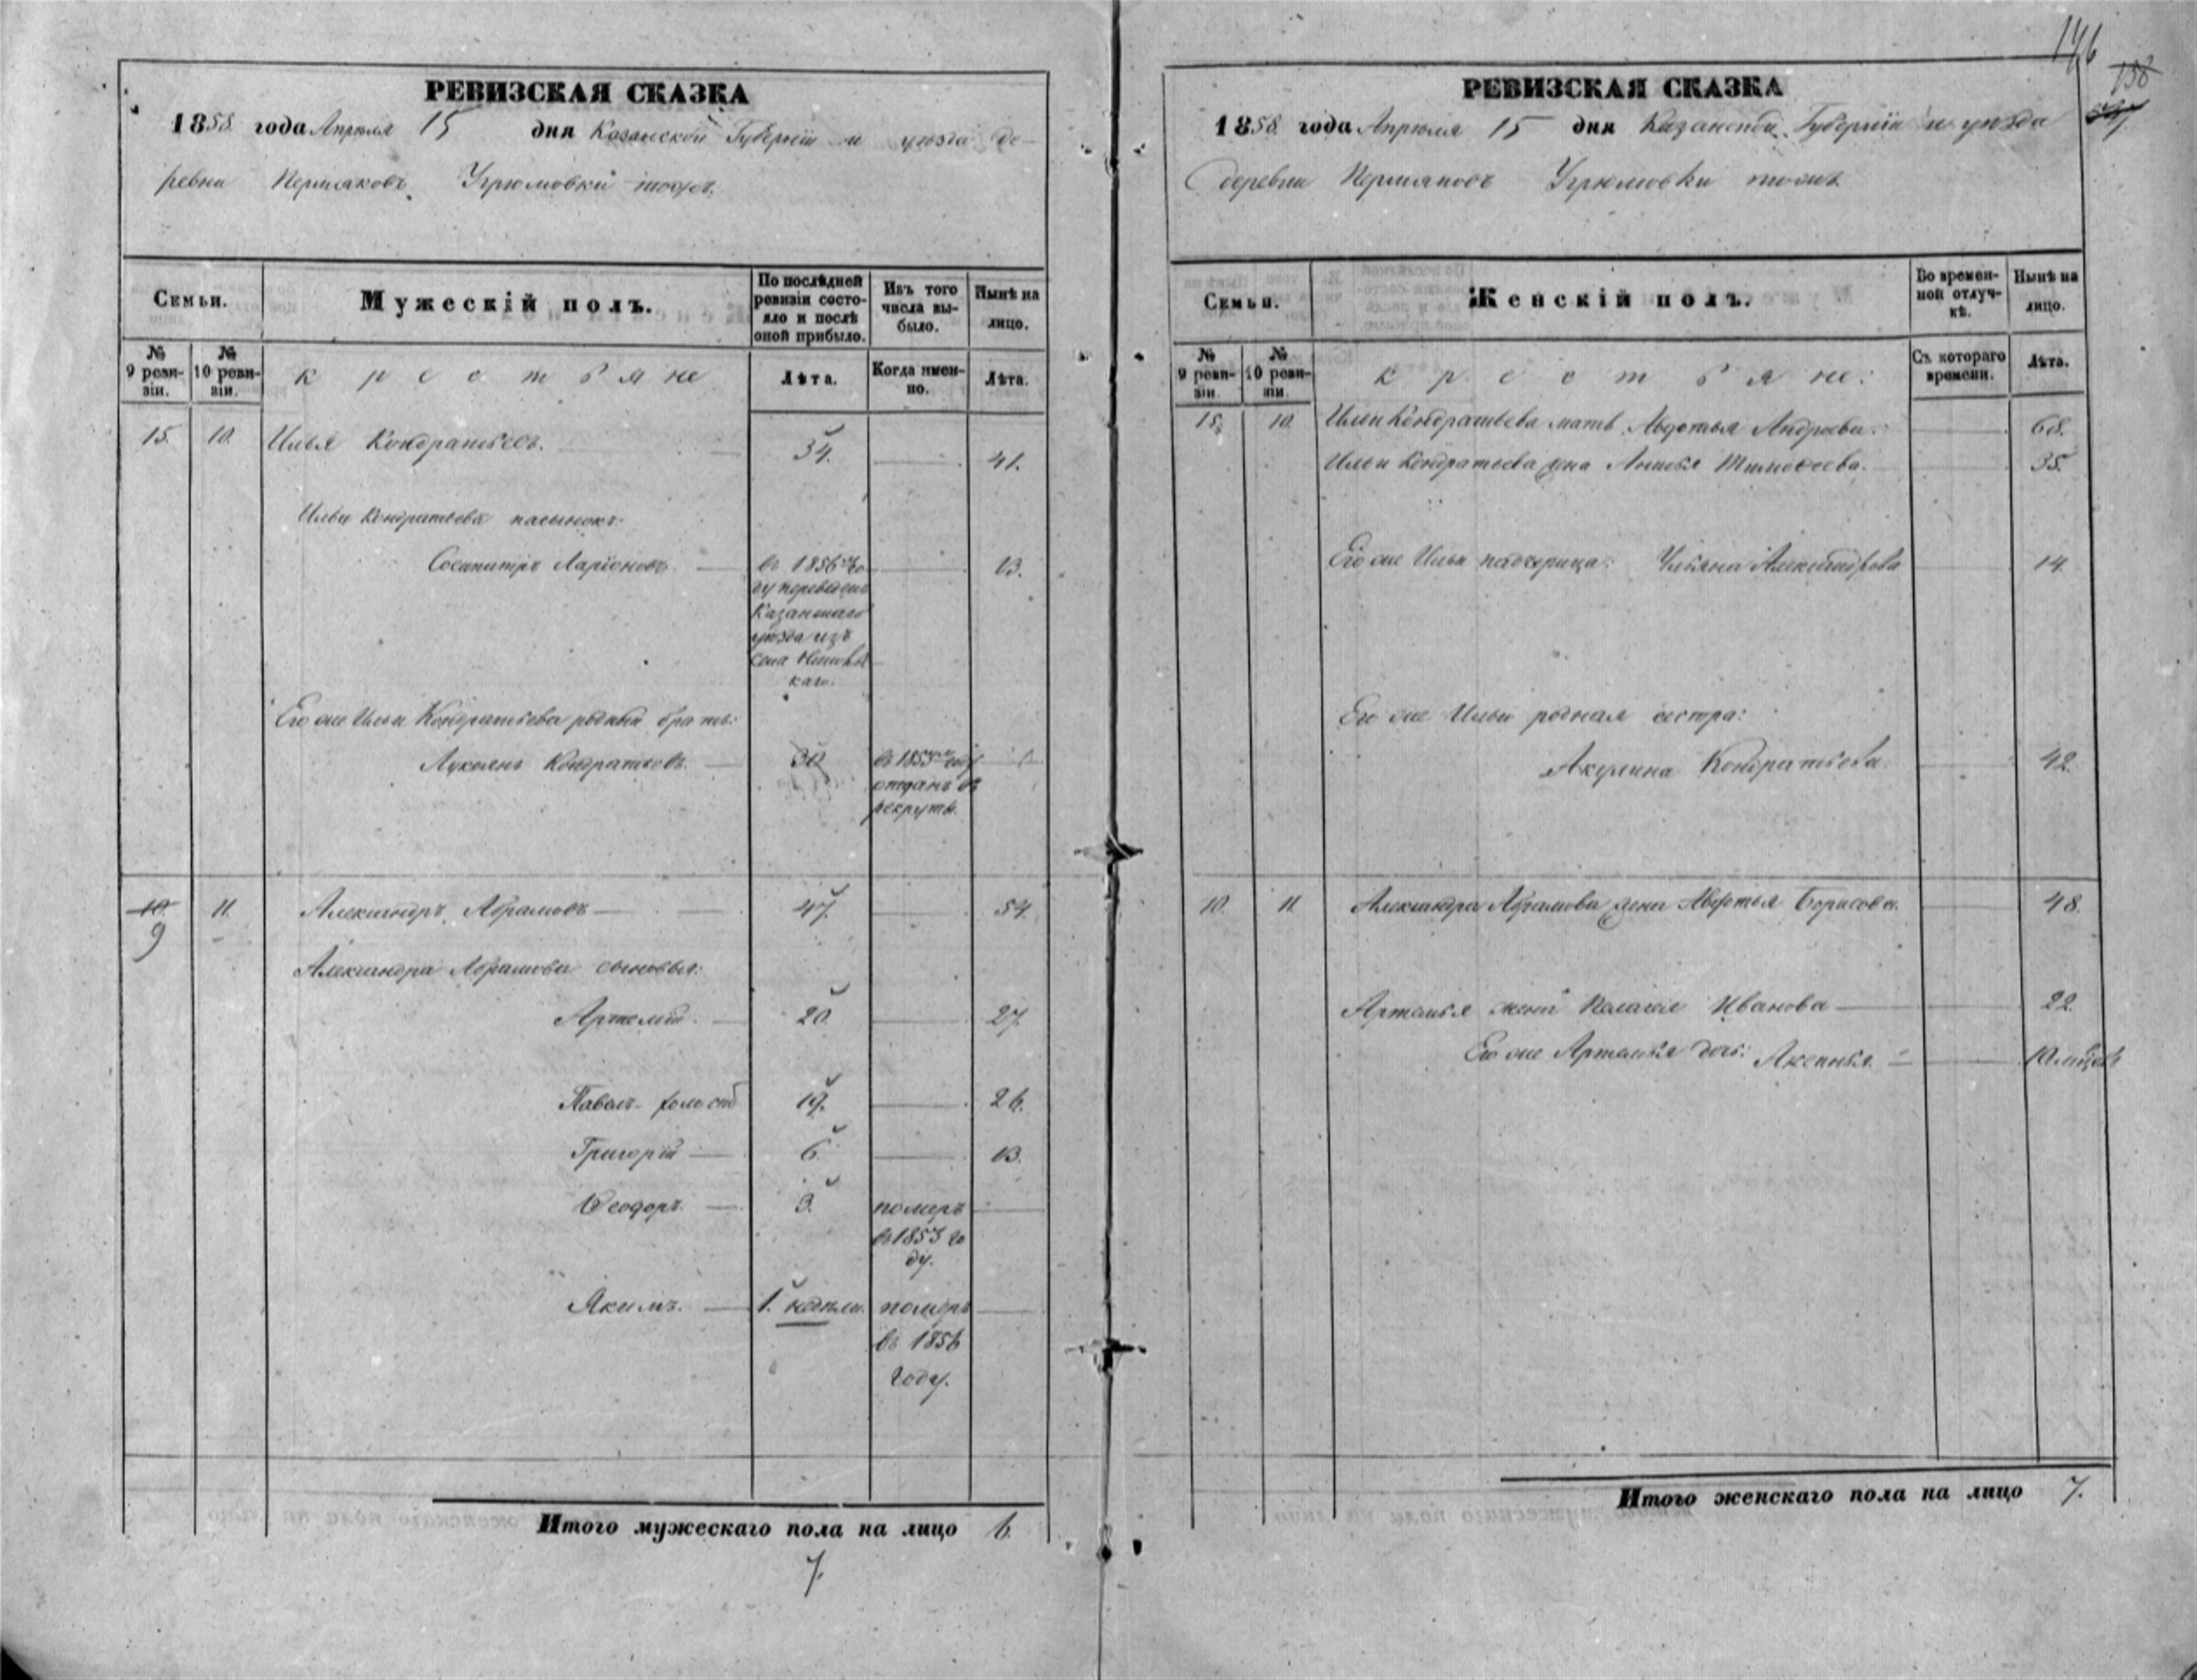 146
158
РЕВИЗСКАЯ СКАЗКА
1858 года Апреля 15 дня Казанской Губернии и уезда де-
ревни Пермяковъ Угрюмовки тожъ.
Семьи.
Мужескій полъ.
По послѣдней ревизіи состояло и послѣ оной прибыло.
Изъ того числа выбыло.
Нынѣ на лицо.
№ 9 ревизіи.
№ 10 ревизіи.
крестьяне
Лѣта.
Когда именно.
Лѣта.
15. 10. Илья Кондратьевъ. 34. 41.
Ильи Кондратьева пасынокъ:
Сосипатръ Ларіоновъ. въ 1856 го- 13.
ду переведенъ
Казанскаго
уѣзда изъ
села
каго.
Его же Ильи Кондратьева родный братъ:
Лукоянъ Кондратьевъ. 30 въ 1855 году
отданъ въ
рекруты.
10. 11. Александръ Абрамовъ 47. 54.
9
Александра Абрамова сыновья:
Артемій. 20. 27.
Павелъ холостъ 19. 26.
Григорій 6. 13.
Ѳеодоръ. 3. померъ
въ 1853 го
ду.
Якимъ. 1. недѣли. померъ
въ 1856
году.
Итого мужескаго пола на лицо 6.
7.
РЕВИЗСКАЯ СКАЗКА
1858. года Апреля 15 дня Казанской Губерніи и уезда
деревни Пермяковъ Угрюмовки тожъ.
Семьи.
Женскій полъ.
Во временной отлучкѣ.
Нынѣ на лицо.
№ 9 ревизіи.
№ 10 ревизіи.
крестьяне:
Съ котораго времени.
Лѣта.
15. 10. Ильи Кондратьева мать Авдотья Андреева. 68.
Ильи Кондратьева жена Анисья Тимоѳеева. 35.
Его же Ильи падчерица: Ульяна Александрова 14.
Его же Ильи родная сестра:
Акулина Кондратьева. 42.
10. 11. Александра Абрамова жена Авдотья Борисова. 48.
Артемья жена Пелагея Иванова 22.
Его же Артемья дочь: Аксинья.
Итого женскаго пола на лицо 7.